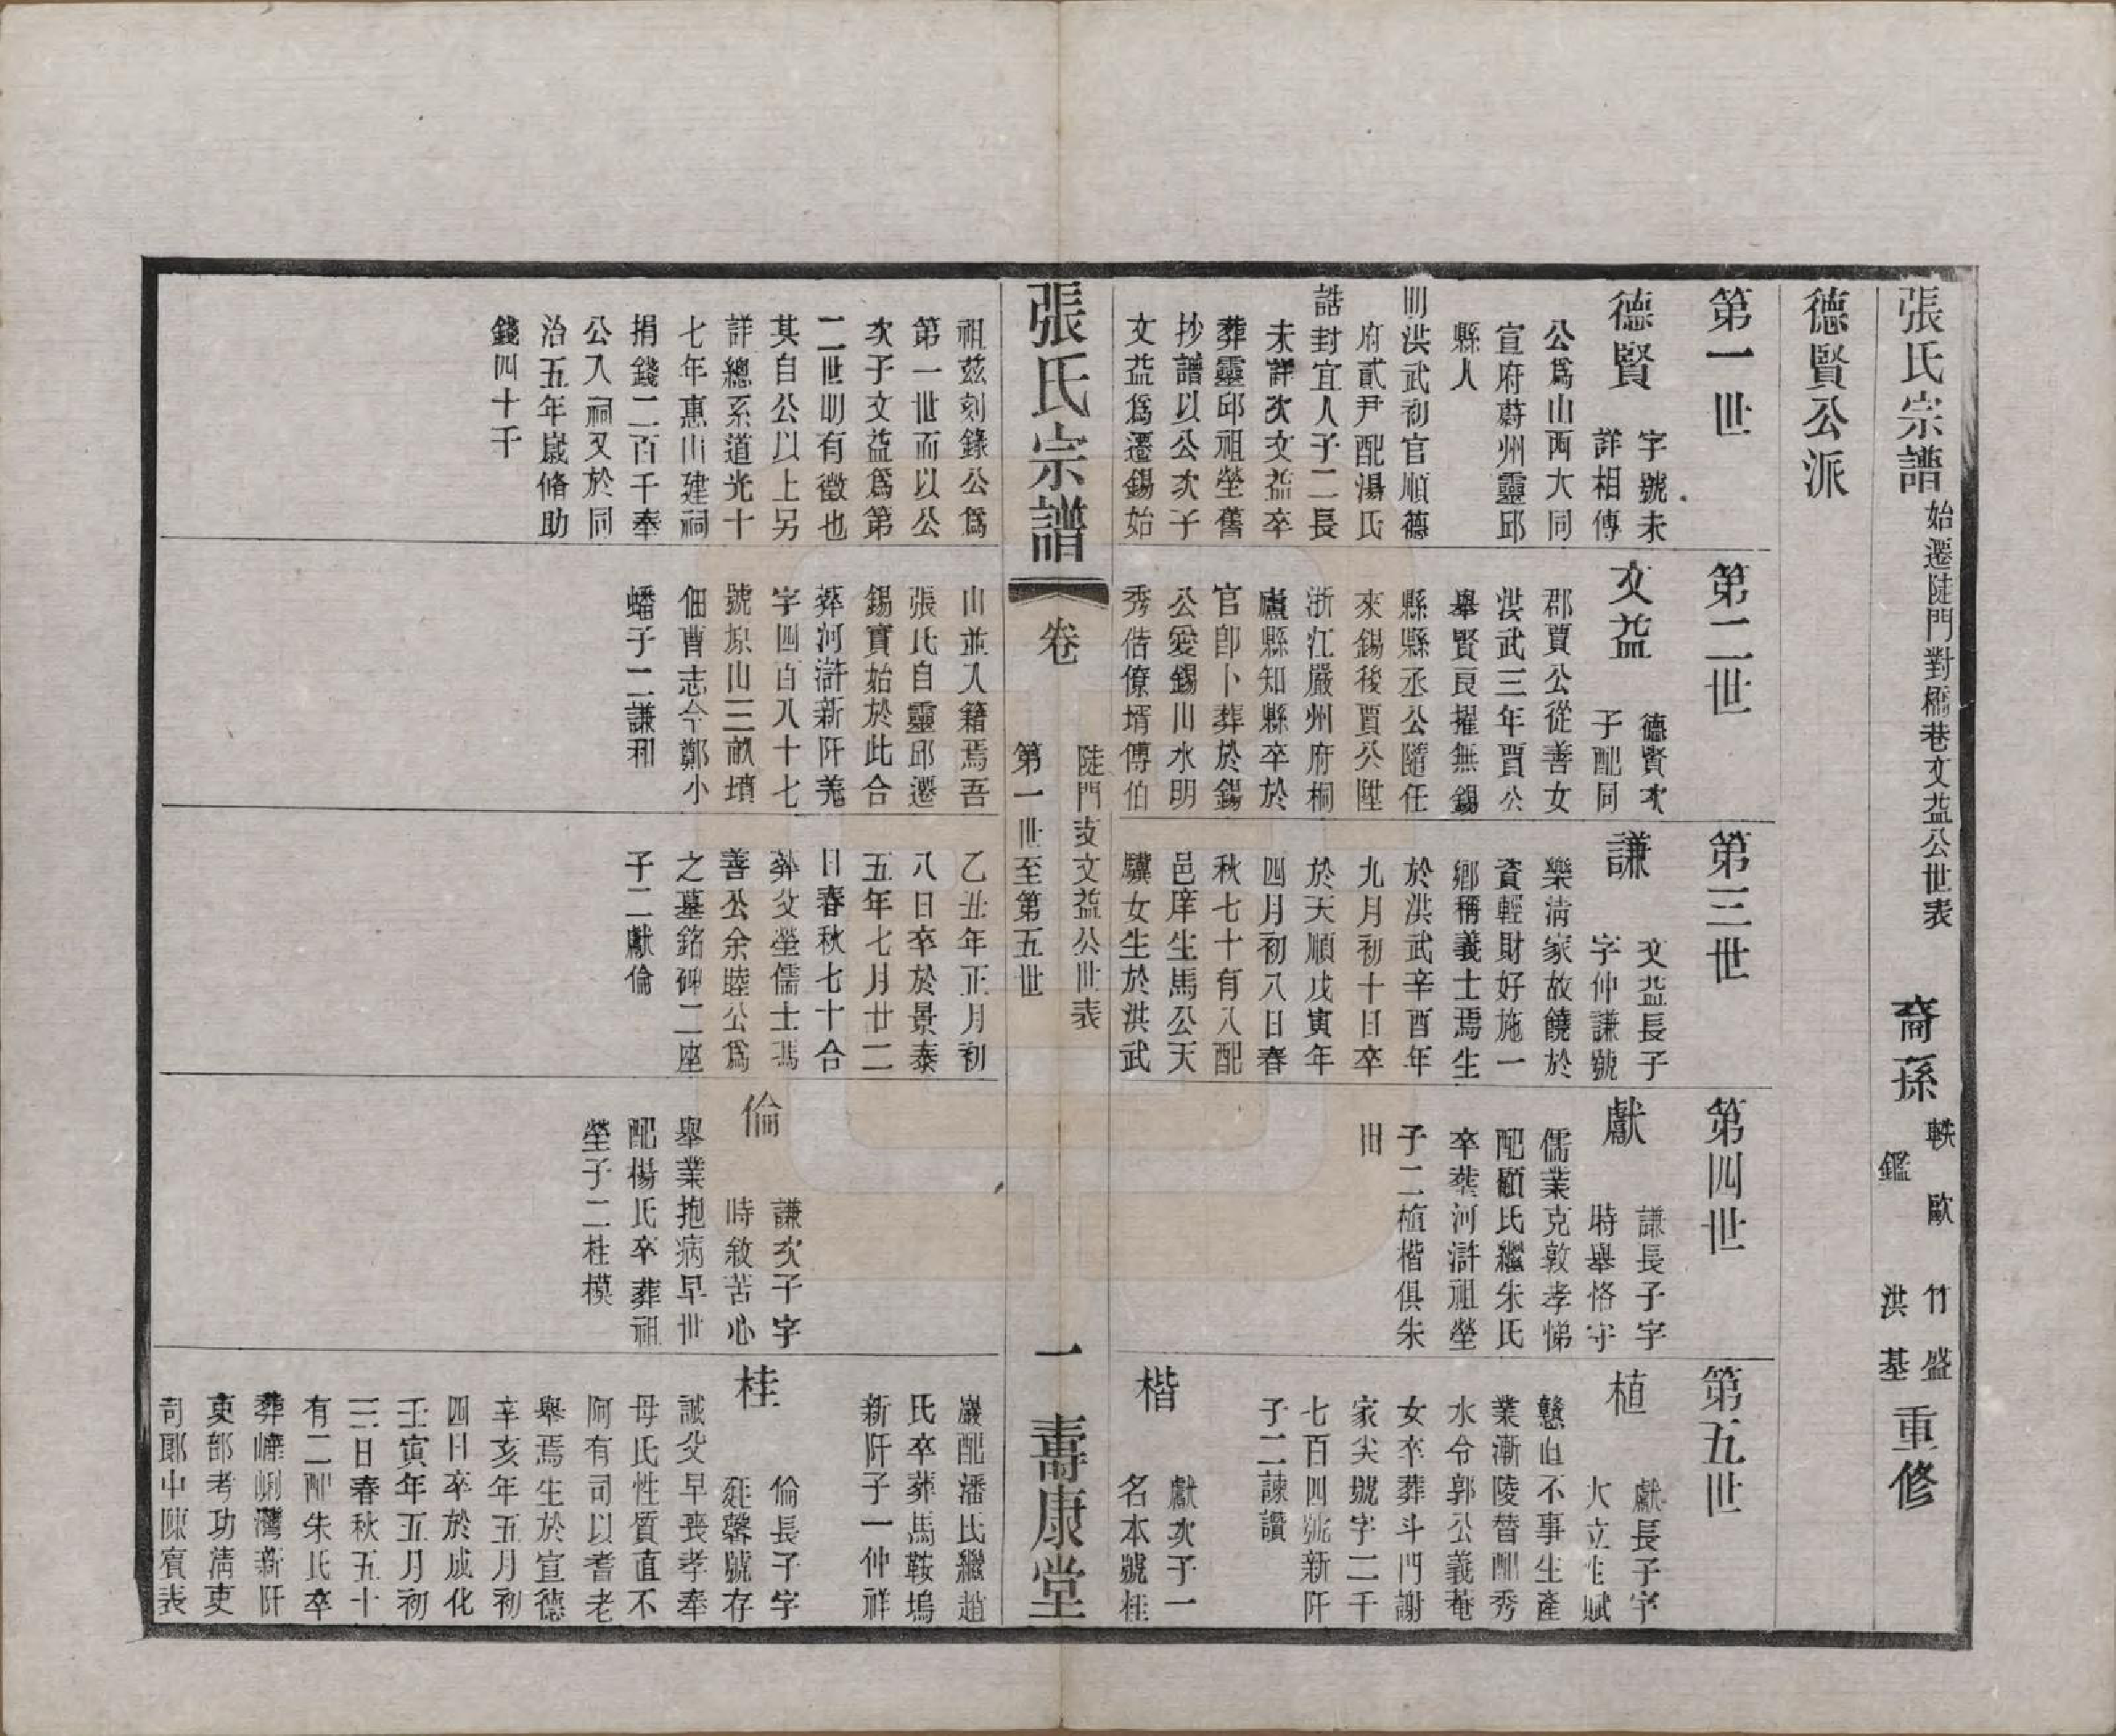 張氏宗譜
始遷陡門對橋巷文益公世表
裔孫
軼歐
鑑
竹盛
洪基
重修
德賢公派
第一世
德賢
字號未
詳相傳
公爲山西大同
宣府蔚州靈邱
縣人
明洪武初官順德
府貳尹配湯氏
誥封宜人子二長
未詳次文益卒
葬靈邱祖塋舊
抄譜以公次子
文益爲遷錫始
祖茲刻錄公爲
第一世而以公
次子文益爲第
二世明有徵也
其自公以上另
詳總系道光十
七年惠山建祠
捐錢二百千奉
公入祠又於同
治五年歲脩助
錢四十千
第二世
文益
德賢次
子配同
郡賈公從善女
洪武三年賈公
舉賢良擢無錫
縣縣丞公隨任
來錫後賈公陞
浙江嚴州府桐
廬縣知縣卒於
官卽卜葬於錫
公愛錫川水明
秀偕僚壻傅伯
山並入籍焉吾
張氏自靈邱遷
錫實始於此合
葬河滸新阡羌
字四百八十七
號原山三畝墳
佃曹志今鄭小
蟠子二謙和
第三世
謙
文益長子
字仲謙號
樂清家故饒於
資輕財好施一
鄉稱義士焉生
於洪武辛酉年
九月初十日卒
於天順戊寅年
四月初八日春
秋七十有八配
邑庠生馬公天
驥女生於洪武
乙丑年正月初
八日卒於景泰
五年七月廿二
日春秋七十合
葬父塋儒士馮
善公余睦公爲
之墓銘碑二座
子二獻倫
第四世
獻
謙長子字
時舉恪守
儒業克敦孝悌
配顧氏繼朱氏
卒葬河滸祖塋
子二植楷俱朱
出
倫
謙次子字
時敘苦心
舉業抱病早世
配楊氏卒葬祖
塋子二桂模
第五世
植
獻長子字
大立性賦
戇直不事生產
業漸陵替配秀
水令郭公義菴
女卒葬斗門謝
家尖號字二千
七百四號新阡
子二諫讚
楷
獻次子一
名本號桂
巖配潘氏繼趙
氏卒葬馬鞍塢
新阡子一仲祥
桂
倫長子字
廷馨號存
誠父早喪孝奉
母氏性質直不
阿有司以耆老
舉焉生於宣德
辛亥年五月初
四日卒於成化
壬寅年五月初
三日春秋五十
有二配朱氏卒
葬嶂峒灣新阡
吏部考功淸吏
司郎中陳賓表
張氏宗譜
卷
陡門支文益公世表
第一世至第五世
一
壽康堂